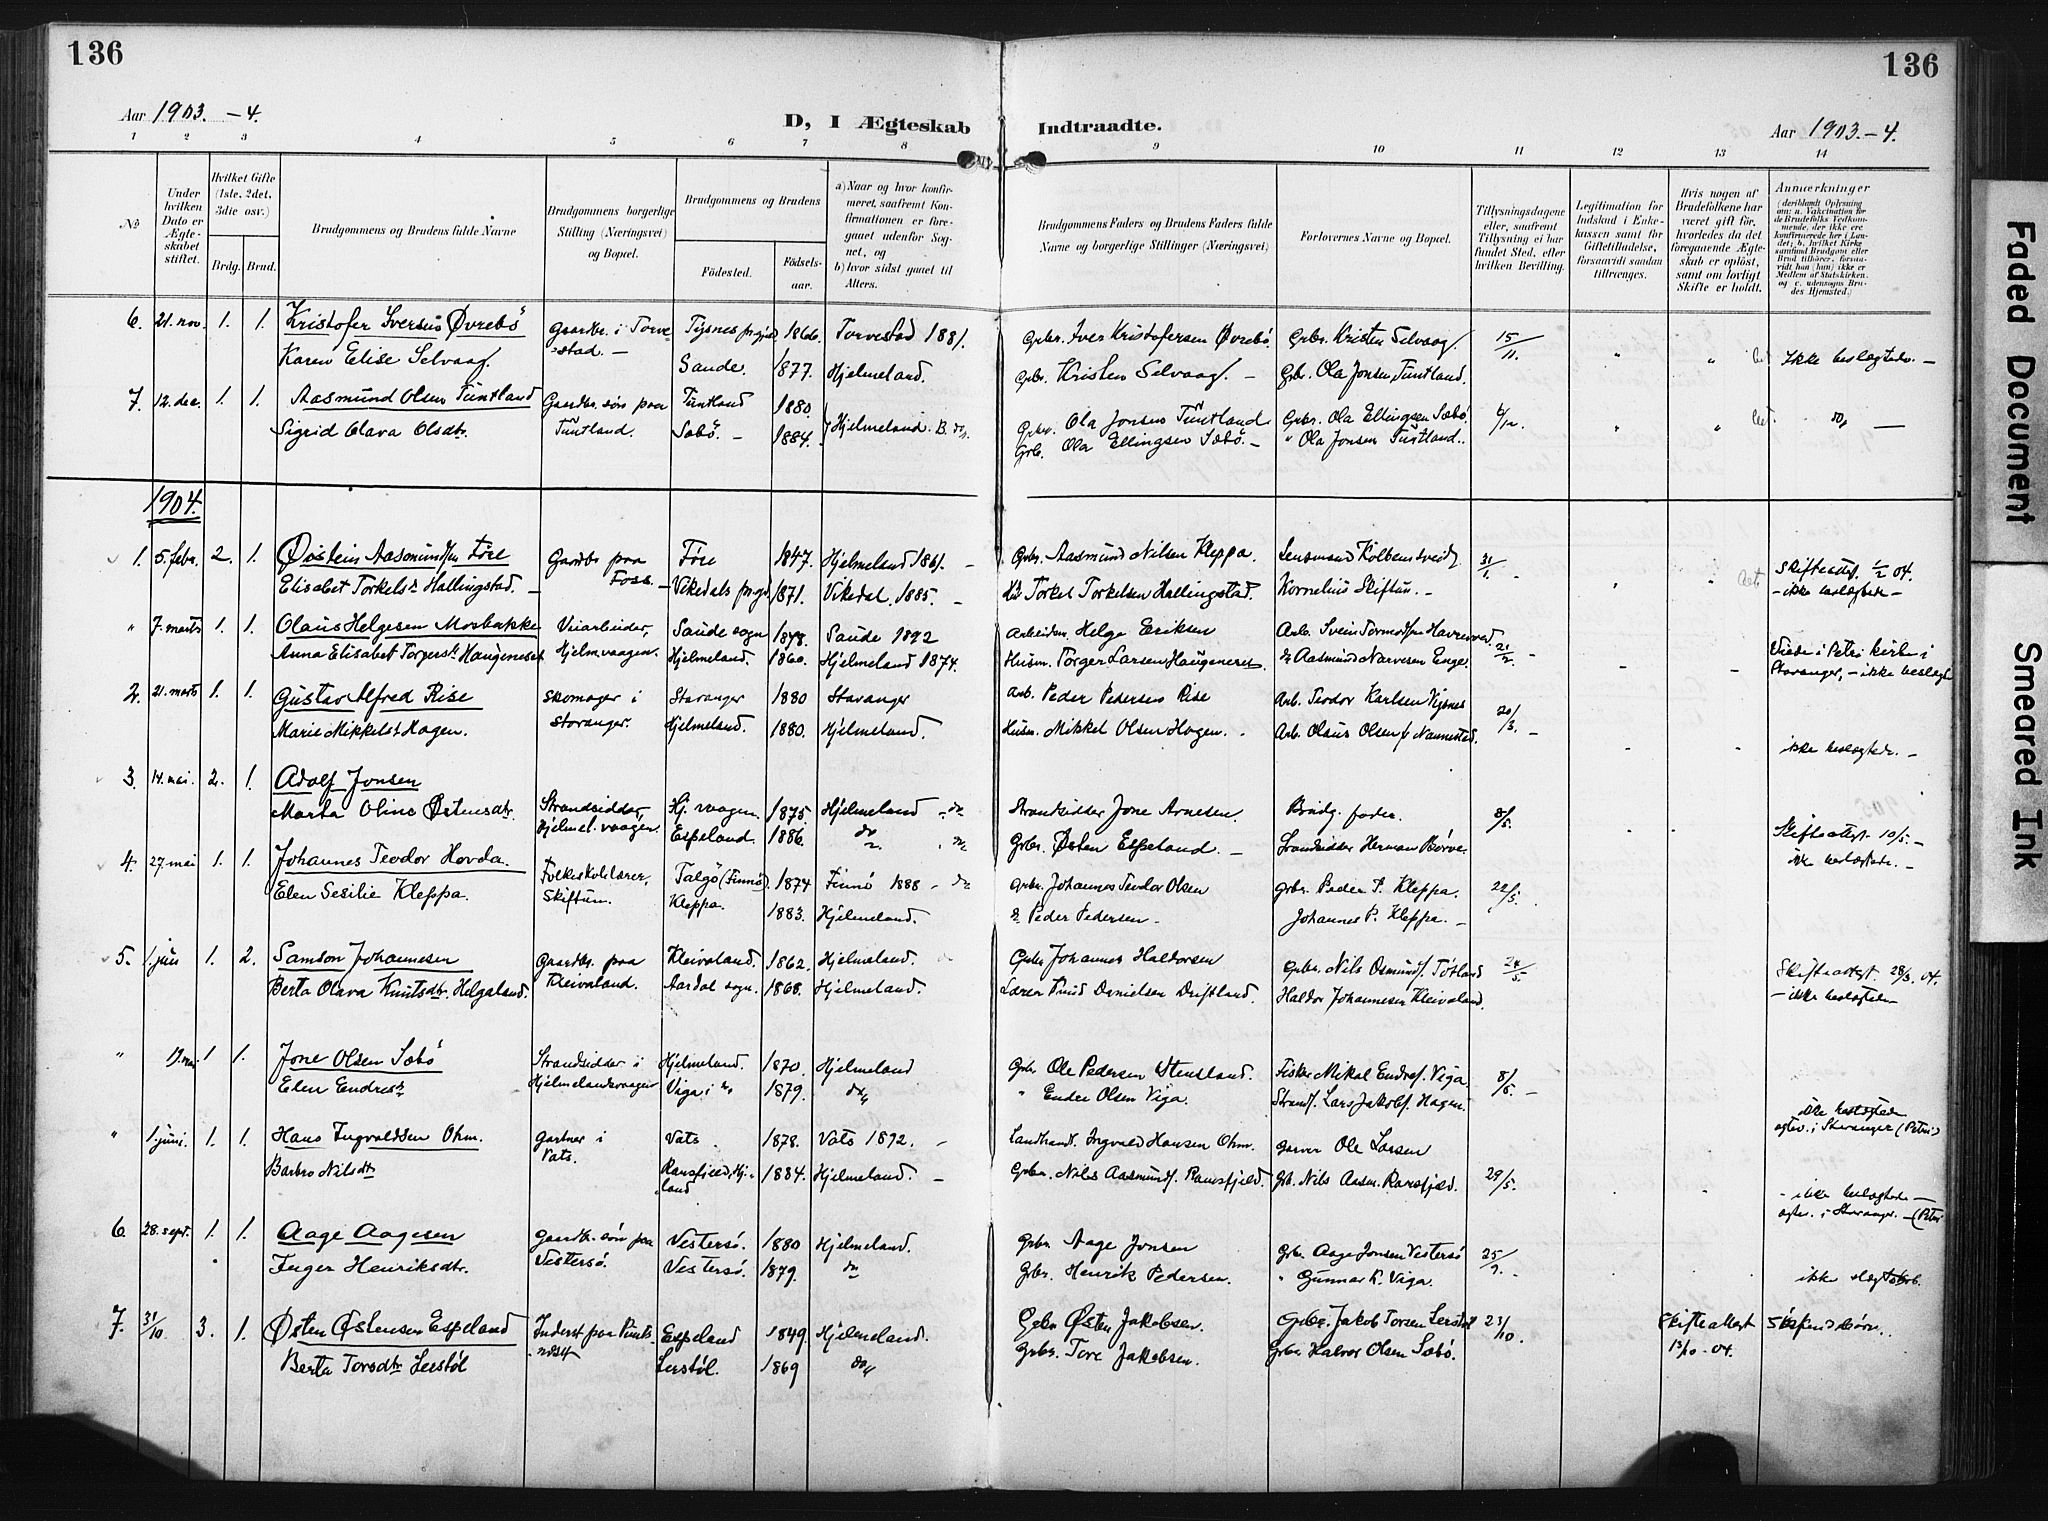 136
136
Aar 1903.-4.
D, I Ægteskab Indtraadte.
Aar 1903.-4.
1 2 3 4 5 6 7 8 9 10 11 12 13 14
No
Under hvilken Dato er Ægteskabet stiftet.
Hvilket Gifte (1ste, 2det, 3die osv.)
Brdg. Brud.
Brudgommens og Brudens fulde Navne
Brudgommens borgerlige Stilling (Næringsvei) og Bopæl.
Brudgommens og Brudens
Fødested.
Fødselsaar.
a) Naar og hvor konfirmeret, saafremt Konfirmationen er foregaaet udenfor Sognet, og
b) hvor sidst gaaet til Alters.
Brudgommens Faders og Brudens Faders fulde Navne og borgerlige Stillinger (Næringsvei)
Forlovernes Navne og Bopæl.
Tillysningsdagene eller, saafremt Tillysning ei har fundet Sted, efter hvilken Bevilling.
Legitimation for Indskud i Enkekassen samt for Giftetilladelse, forsaavidt saadan tiltrænges.
Hvis nogen af Brudefolkene har været gift før, hvorledes da det foregaaende Ægteskab er opløst, samt om lovligt Skifte er holdt.
Anmærkninger (deriblandt Oplysning om: a. Vakcination for de Brudefolks Vedkommende, der ikke ere konfirmerede her i Landet; b. hvilket Kirkesamfund Brudgom eller Brud tilhører, forsaavidt han (hun) ikke er Medlem af Statskirken, og c. udensogns Brudes Hjemsted.)
6. 21. nov. 1. 1. Kristofer Iversen Øvrebö Gaardbr. i Torve- Tysnes prgjæld 1866. Torvestad 1881. Gbr. Iver Kristofersen Øvrebö. Gbr. Kristen Selvaag. 15/11. " " Ikke beslægtede. -
Karen Elise Selvaag. stad. - Sande. 1877. Hjelmeland. Gbr. Kristen Selvaag. - Gbr. Ola Jonsen Tuntland.
7. 12. dec. 1. 1. Aasmund Olsen Tuntland Gaardbr. søn paa Tuntland 1880 Hjelmeland. B. do. Gbr. Ola Jonsen Tuntland Gbr. Ola Ellingsen Sæbö " " do.
Sigrid Olava Olsdtr. Tuntland. Sæbö. - 1884. Grb. Ola Ellingsen Sæbö. - " Ola Jonsen Tuntland.
1904.
1. 5. febr. 2. 1. Øistein Aasmundsen Fosse Gaardbr. paa Fosse 1847. Hjelmeland 1861. - Gbr. Aasmund Nilsen Kleppa. Lensmand Kolbenstvedt 31/1. " " Skifteattest 1/2 04.
Elisabet Torkelsdtr Hallingstad. Foss. - Vikedals prgd. 1871. Vikedal. 1885. - Torkel Torkelsen Hallingstad. Kornelius Skiftun. - - ikke beslægtede -
" 7. marts 1. 1. Olaus Helgesen Mosbakke Veiarbeider, Saude sogn 1878. Saude 1892 Arbeider. Helge Eriksen Arb. Svein Tormodsen 21/2. - Viede i Petri kirke i
Anna Elisabet Torgersdtr Haugeneset Hjelmvaagen. Hjelmeland. 1860. Hjelmeland 1874. Husm. Torger Larsen Haugeneset. Aasmund Narvesen Enge. Stavanger, - ikke beslægt
2. 21. marts 1. 1. Gustav Alfred Rise Skomager i Stavanger 1880 Stavanger Arb. Peder Pedersen Rise Arb. Teodor Karlsen Vignes 20/3.
Marie Mikkelsdt Hagen. Stavanger. Hjelmeland. 1880. Hjelmeland. Husm. Mikkel Olsen Hagen. Arb. Olaus Olsen f. Nannestad. ikke beslægtede. -
3. 14. mai. 2. 1. Adolf Jonsen
Marta Oline Østensdtr. Strandsidder, Hjelmel. vaagen. Hj. vaagen. 1875. Hjelmeland - do Strandsidder Jone Arnesen Brudg. fader. 8/5. Skifteattest 10/5. -
Espeland. 1886. do Gbr. Østen Espeland. - Strandsidder Herman Børve. ikke beslægtede. -
4. 27. mai 1. 1. Johannes Teodor Hovda. Folkeskolelærer, Talgö (Finnö). 1874 Finnö 1888 - do Gbr. Johannes Teodor Olsen Gbr. Peder P. Kleppa. 22/5.
Elen Sesilie Kleppa. Skiftun. Kleppa. 1883. Hjelmeland. Peder Pedersen - Johannes P. Kleppa. -
5. 1. juni 1. 2. Samson Johannesen Gaardbr. paa Kleivaland. 1862. Hjelmeland. Gbr. Johannes Haldorsen Gbr. Nils Osmunds. Tøtland 24/5. Skifteattest 28/3. 04.
Berta Olava Knutsdtr. Helgaland. Kleivaland. Aardal sogn. 1868. Hjelmeland. Lærer Knud Danielsen Haldor Johannesen Kleivaland. - ikke beslægtede
" 19. mai 1. 1. Jone Olsen Sæbö Strandsidder i Hjelmeland. 1870. Hjelmeland Gbr. Ole Pedersen Stensland. Fisker Mikal Endres. Viga. 8/5. -
Elen Endresdtr Hjelmelandsvaagen Viga i do 1879. do " Endre Olsen Viga. Strands. Lars Jakobs. Hagen. ikke beslægtede
" 1. juni. 1. 1. Hans Ingvaldsen Ohm. Gartner i Vats. 1878. Vats 1892. - Landhandl. Ingvald Hansen Ohm. Garver Ole Larsen agtev. i Stavanger (Petri)
Barbro Nilsdtr Vats. Ramsfjeld, Hj.-land 1884. Hjelmeland. - Gbr. Nils Aasmunds. Ramsfjeld. Gb. Nils Aasm. Ramsfjeld. 29/5. - ikke beslægtede -
agtev. i Stavanger. - (Petri
6. 28. sept. 1. 1. Aage Aagesen Gaardbr. søn paa Vestersø. 1880 Hjelmeland. Gbr. Aage Jonsen Gbr. Aage Jonsen Vestersø 25/9.
Inger Henriksdtr. Vestersø. Vestersø. 1879. do Gbr. Henrik Pedersen. " Gunnar K. Viga. ikke slægtskab.
7. 31/10. 3. 1. Østen Østensen Espeland Inderst paa Espeland 1849. Hjelmeland. Gbr Østen Jakobsen. Gbr. Jakob Torsen Lerstøl 23/10. Skifteattest
Berta Torsdtr Lerstøl Lerstøl. 1869 do Gbr. Tore Jakobsen. Gbr Halvor Olsen Sæbø. 13/10 - 04.
Faded Document
Smeared Ink